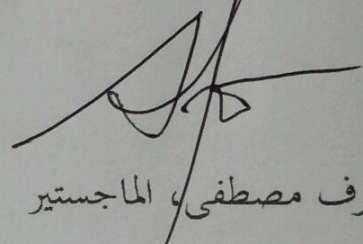 رف مصطفى، الماجستير